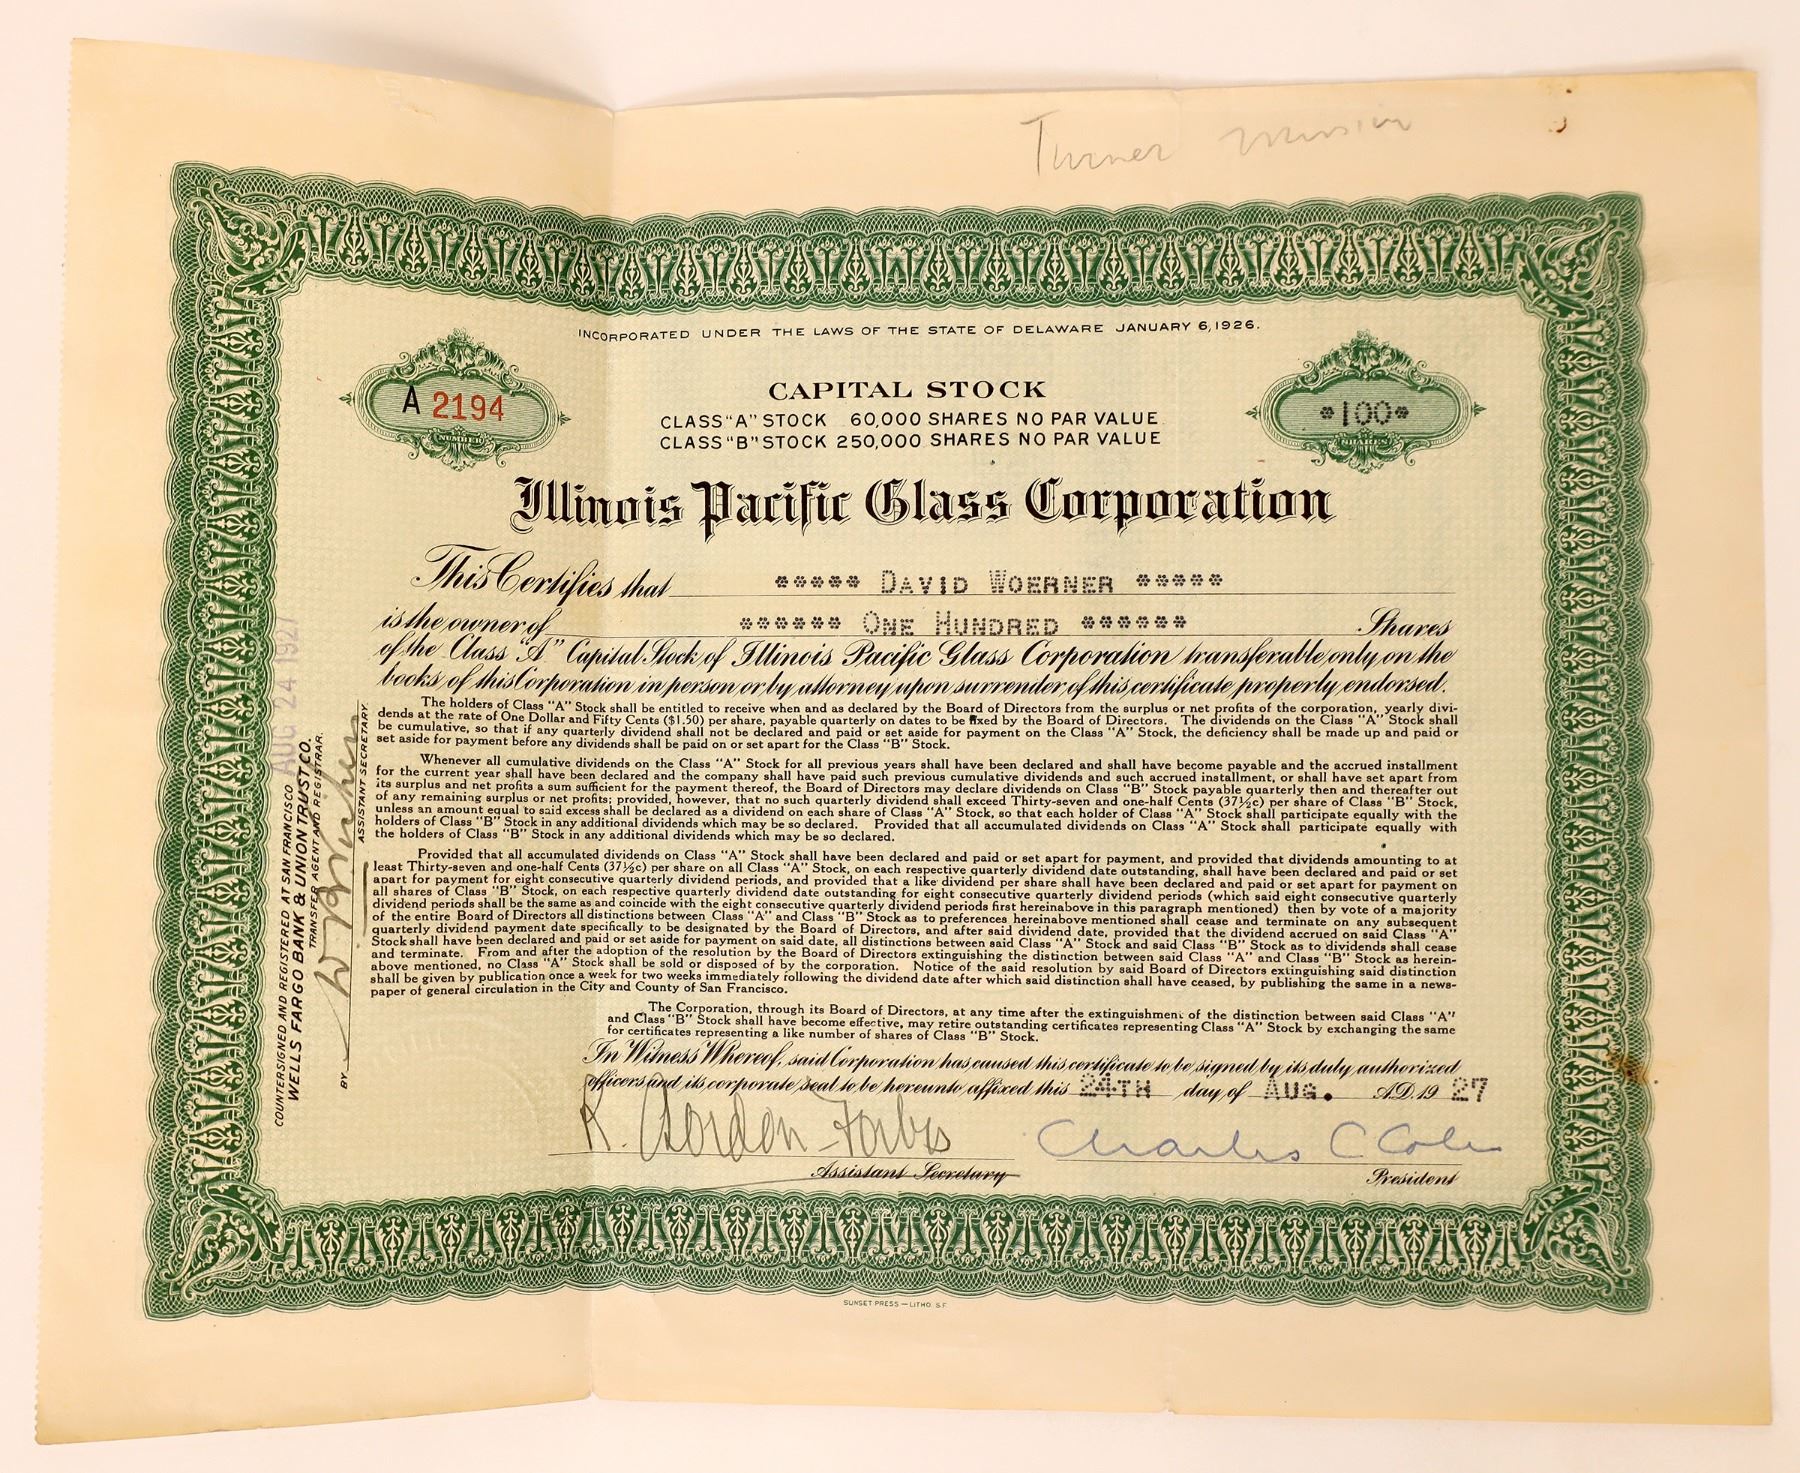 Turner
INCORPORATED UNDER THE LAWS OF THE STATE OF DELAWARE JANUARY 6, 1926.
CAPITAL STOCK
CLASS "A" STOCK 60,000 SHARES NO PAR VALUE
CLASS "B" STOCK 250,000 SHARES NO PAR VALUE
A 2194
NUMBER
*100*
SHARES
Illinois Pacific Glass Corporation
This Certifies that ***** DAVID WOERNER *****
is the owner of ****** ONE HUNDRED ****** Shares
of the Class "A" Capital Stock of Illinois Pacific Glass Corporation transferable only on the
books of this Corporation in person or by attorney upon surrender of this certificate properly endorsed.
The holders of Class "A" Stock shall be entitled to receive when and as declared by the Board of Directors from the surplus or net profits of the corporation, yearly divi-
dends at the rate of One Dollar and Fifty Cents ($1.50) per share, payable quarterly on dates to be fixed by the Board of Directors. The dividends on the Class "A" Stock shall
be cumulative, so that if any quarterly dividend shall not be declared and paid or set aside for payment on the Class "A" Stock, the deficiency shall be made up and paid or
set aside for payment before any dividends shall be paid on or set apart for the Class "B" Stock.
Whenever all cumulative dividends on the Class "A" Stock for all previous years shall have been declared and shall have become payable and the accrued installment
for the current year shall have been declared and the company shall have paid such previous cumulative dividends and such accrued installment, or shall have set apart from
its surplus and net profits a sum sufficient for the payment thereof, the Board of Directors may declare dividends on Class "B" Stock payable quarterly then and thereafter out
of any remaining surplus or net profits; provided, however, that no such quarterly dividend shall exceed Thirty-seven and one-half Cents (37½c) per share of Class "B" Stock,
unless an amount equal to said excess shall be declared as a dividend on each share of Class "A" Stock, so that each holder of Class "A" Stock shall participate equally with the
holders of Class "B" Stock in any additional dividends which may be so declared. Provided that all accumulated dividends on Class "A" Stock shall participate equally with
the holders of Class "B" Stock in any additional dividends which may be so declared.
Provided that all accumulated dividends on Class "A" Stock shall have been declared and paid or set apart for payment, and provided that dividends amounting to at
least Thirty-seven and one-half Cents (37½c) per share on all Class "A" Stock, on each respective quarterly dividend date outstanding, shall have been declared and paid or set
apart for payment for eight consecutive quarterly dividend periods, and provided that a like dividend per share shall have been declared and paid or set apart for payment on
all shares of Class "B" Stock, on each respective quarterly dividend date outstanding for eight consecutive quarterly dividend periods (which said eight consecutive quarterly
dividend periods shall be the same as and coincide with the eight consecutive quarterly dividend periods first hereinabove in this paragraph mentioned) then by vote of a majority
of the entire Board of Directors all distinctions between Class "A" and Class "B" Stock as to preferences hereinabove mentioned shall cease and terminate on any subsequent
quarterly dividend payment date specifically to be designated by the Board of Directors, and after said dividend date, provided that the dividend accrued on said Class "A"
Stock shall have been declared and paid or set aside for payment on said date, all distinctions between said Class "A" Stock and said Class "B" Stock as to dividends shall cease
and terminate. From and after the adoption of the resolution by the Board of Directors extinguishing the distinction between said Class "A" and Class "B" Stock as herein-
above mentioned, no Class "A" Stock shall be sold or disposed of by the corporation. Notice of the said resolution by said Board of Directors extinguishing said distinction
shall be given by publication once a week for two weeks immediately following the dividend date after which said distinction shall have ceased, by publishing the same in a news-
paper of general circulation in the City and County of San Francisco.
The Corporation, through its Board of Directors, at any time after the extinguishment of the distinction between said Class "A"
and Class "B" Stock shall have become effective, may retire outstanding certificates representing Class "A" Stock by exchanging the same
for certificates representing a like number of shares of Class "B" Stock.
In Witness Whereof, said Corporation has caused this certificate to be signed by its duly authorized
officers and its corporate seal to be hereunto affixed this 24TH day of AUG. A.D. 1927
R. Gordon Forbes
Charles C Cole
Assistant Secretary
President
COUNTERSIGNED AND REGISTERED AT SAN FRANCISCO AUG 24 1927
WELLS FARGO BANK & UNION TRUST CO.
TRANSFER AGENT AND REGISTRAR.
BY
ASSISTANT SECRETARY.
SUNSET PRESS — LITHO. S.F.